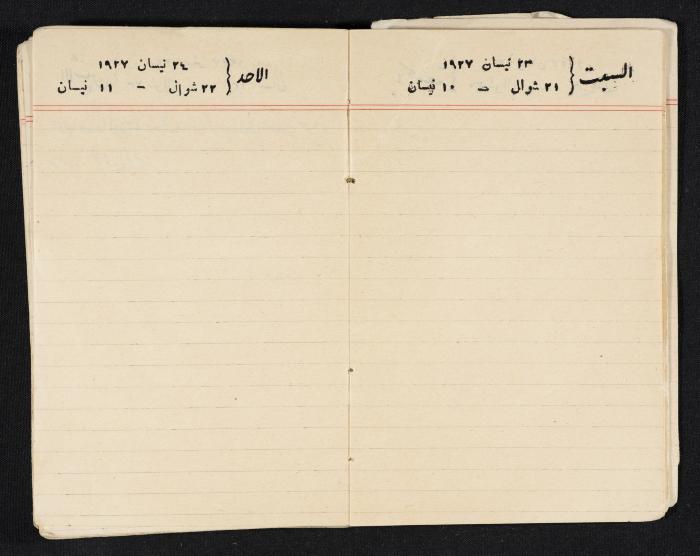 السبت { ٢٣ نيسان ١٩٢٧
٢١ شوال - ١٠ نيسان
الاحد { ٢٤ نيسان ١٩٢٧
٢٢ شوال - ١١ نيسان